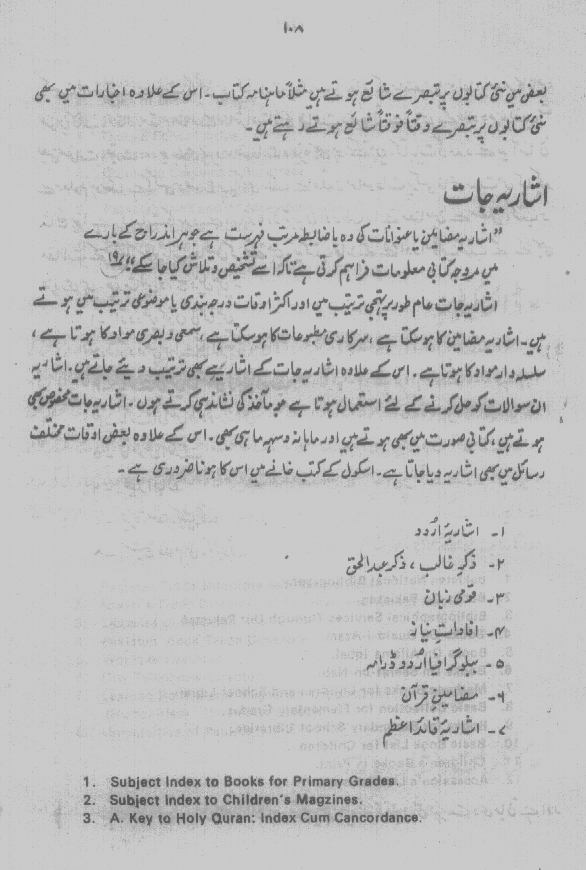 ۱۰۸
بعض میں نئی کتابوں پر تبصرے شائع ہوتے ہیں مثلاً ماہنامہ کتاب۔ اس کے علاوہ اخبارات میں بھی
نئی کتابوں پر تبصرے وقتاً فوقتاً شائع ہوتے رہتے ہیں۔
اشاریہ جات
"اشاریہ مضامین یا عنوانات کی وہ باضابطہ مرتب فہرست ہے جو ہر اندراج کے بارے
میں مروجہ کتابی معلومات فراہم کرتی ہے تاکہ اسے تشخیص و تلاش کیا جا سکے"
اشاریہ جات عام طور پر تہجی ترتیب میں اور اکثر اوقات درجہ بندی یا موضوعی ترتیب میں ہوتے
ہیں۔ اشاریہ مضامین کا ہو سکتا ہے، سرکاری مطبوعات کا ہو سکتا ہے، سمعی و بصری مواد کا ہوتا ہے،
سلسلہ وار مواد کا ہوتا ہے۔ اس کے علاوہ اشاریہ جات کے اشاریے بھی ترتیب دیئے جاتے ہیں۔ اشاریہ
ان سوالات کو حل کرنے کے لئے استعمال ہوتا ہے جو ماخذ کی نشاندہی کرتے ہوں۔ اشاریہ جات مخصوص بھی
ہوتے ہیں، کتابی صورت میں بھی ہوتے ہیں اور ماہانہ و سہ ماہی بھی۔ اس کے علاوہ بعض اوقات مختلف
رسائل میں بھی اشاریہ دیا جاتا ہے۔ اسکول کے کتب خانے میں اس کا ہونا ضروری ہے۔
۱۔ اشاریۂ اُردو
۲۔ ذکرِ غالب، ذکر عبدالحق
۳۔ قومی زبان
۴۔ افاداتِ نیاز
۵۔ ببلوگرافیا اُردو ڈرامہ
۶۔ مضامینِ قرآن
۷۔ اشاریۂ قائد اعظم
1. Subject Index to Books for Primary Grades.
2. Subject Index to Children's Magzines.
3. A. Key to Holy Quran: Index Cum Cancordance.